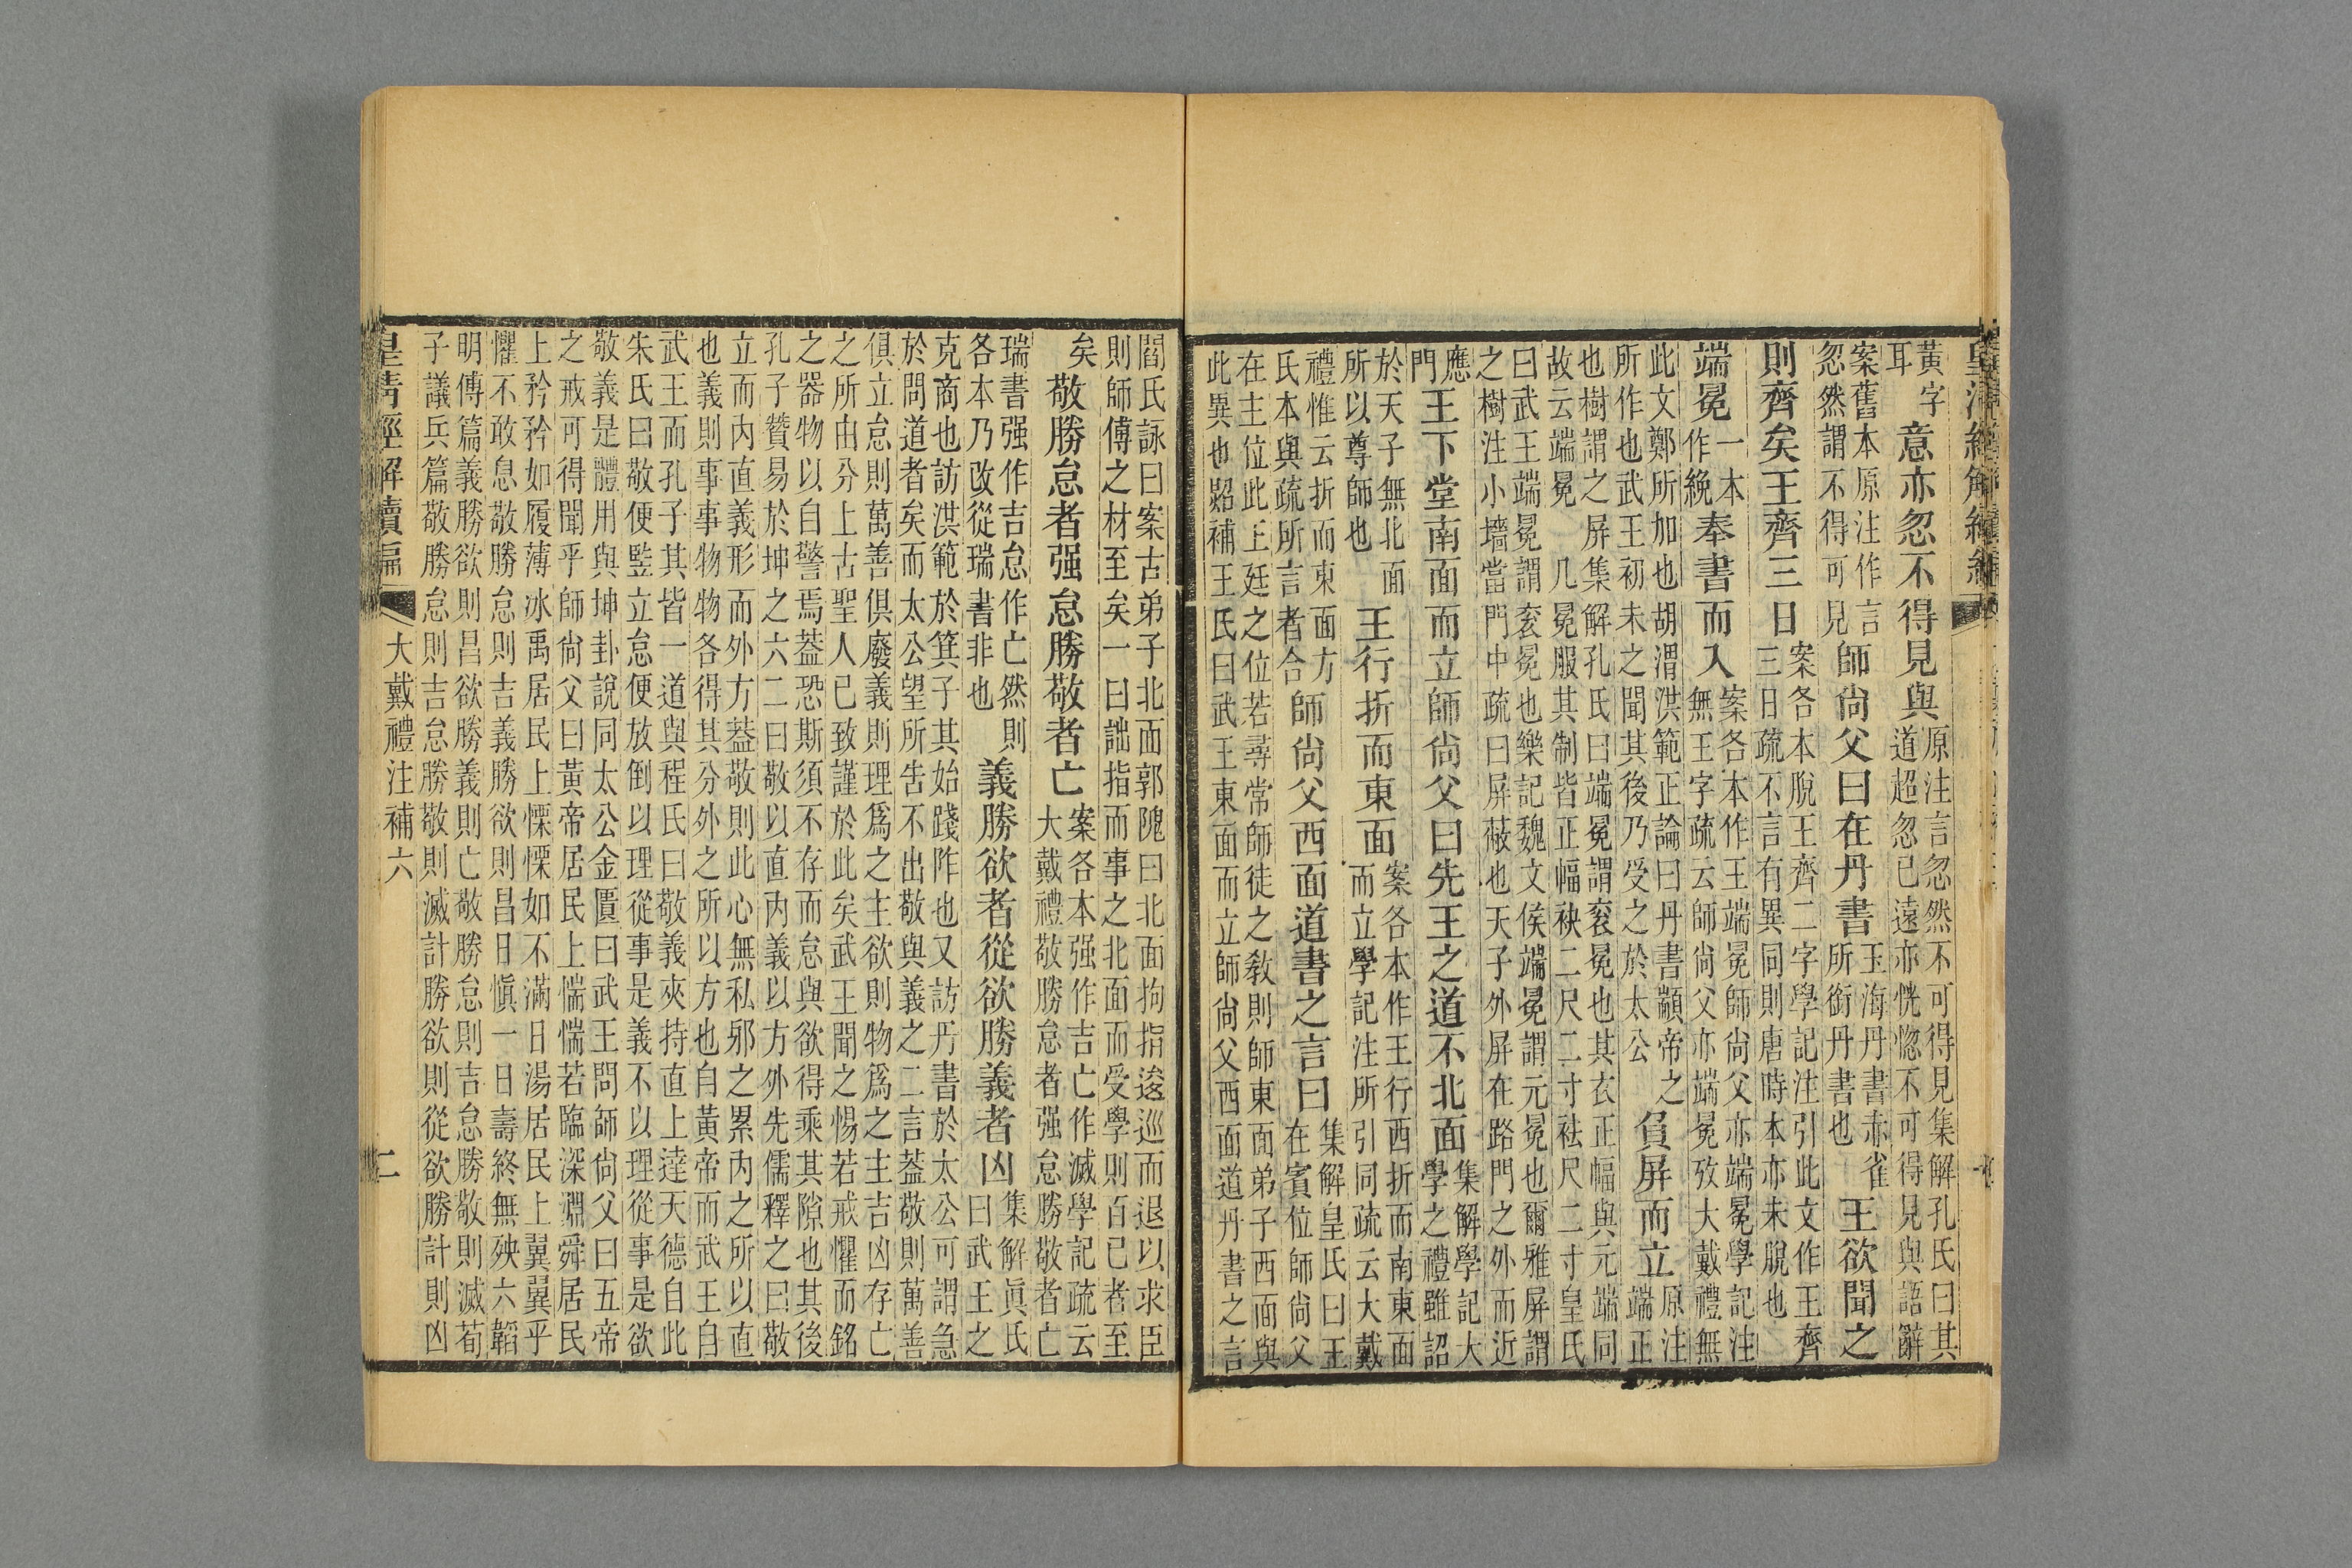 黃字
耳
意亦忽不得見與
原注言忽然不可得見集解孔氏曰其
道超忽已遠亦恍惚不可得見與語辭
案舊本原注作言
忽然謂不得可見
師尙父曰在丹書
玉海丹書赤雀
所銜丹書也
王欲聞之
則齊矣王齊三日
案各本脫王齊二字學記注引此文作王齊
三日疏不言有異同則唐時本亦未脫也
端冕
一本
作絻
奉書而入
案各本作王端冕師尙父亦端冕學記注
無王字疏云師尙父亦端冕攷大戴禮無
此文鄭所加也胡渭洪範正論曰丹書顓帝之
所作也武王初未之聞其後乃受之於太公
負屏而立
原注
端正
也樹謂之屏集解孔氏曰端冕謂袞冕也其衣正幅與元端同
故云端冕 几冕服其制皆正幅袂二尺二寸袪尺二寸皇氏
曰武王端冕謂袞冕也樂記魏文侯端冕謂元冕也爾雅屏謂
之樹注小墻當門中疏曰屏蔽也天子外屏在路門之外而近
應
門
王下堂南面而立師尙父曰先王之道不北面
集解學記大
學之禮雖詔
於天子無北面
所以尊師也
王行折而東面
案各本作王行西折而南東面
而立學記注所引同疏云大戴
禮惟云折而東面方
氏本與疏所言者合
師尙父西面道書之言曰
集解皇氏曰王
在賓位師尙父
在主位此王廷之位若尋常師徒之敎則師東面弟子西面與
此異也愚補王氏曰武王東面而立師尙父西面道丹書之言
閻氏詠曰案古弟子北面郭隗曰北面拘指逡巡而退以求臣
則師傅之材至矣一曰詘指而事之北面而受學則百已者至
矣
敬勝怠者强怠勝敬者亡
案各本强作吉亡作滅學記疏云
大戴禮敬勝怠者强怠勝敬者亡
瑞書强作吉怠作亡然則
各本乃改從瑞書非也
義勝欲者從欲勝義者凶
集解眞氏
曰武王之
克商也訪洪範於箕子其始踐阼也又訪丹書於太公可謂急
於問道者矣而太公望所告不出敬與義之二言葢敬則萬善
俱立怠則萬善俱廢義則理爲之主欲則物爲之主吉凶存亡
之所由分上古聖人已致謹於此矣武王聞之惕若戒懼而銘
之器物以自警焉葢恐斯須不存而怠與欲得乘其隙也其後
孔子贊易於坤之六二曰敬以直內義以方外先儒釋之曰敬
立而內直義形而外方葢敬則此心無私邪之累內之所以直
也義則事事物物各得其分外之所以方也自黃帝而武王自
武王而孔子其皆一道與程氏曰敬義夾持直上達天德自此
朱氏曰敬便監立怠便放倒以理從事是義不以理從事是欲
敬義是體用與坤卦說同太公金匱曰武王問師尙父曰五帝
之戒可得聞乎師尙父曰黃帝居民上惴惴若臨深淵舜居民
上矜矜如履薄冰禹居民上慄慄如不滿日湯居民上翼翼乎
懼不敢息敬勝怠則吉義勝欲則昌日愼一日壽終無殃六韜
明傅篇義勝欲則昌欲勝義則亡敬勝怠則吉怠勝敬則滅荀
子議兵篇敬勝怠則吉怠勝敬則滅計勝欲則從欲勝計則凶
皇淸經解續編 大戴禮注補六 二